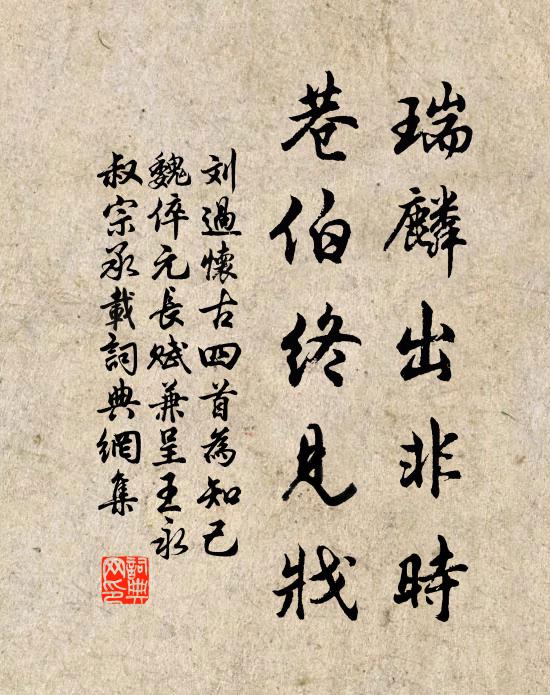 瑞麟出非時
巷伯终見戕
刘過懷古四首為知己
魏倅元長赋兼呈王永
叔宗丞載詞典網集
詞典網印